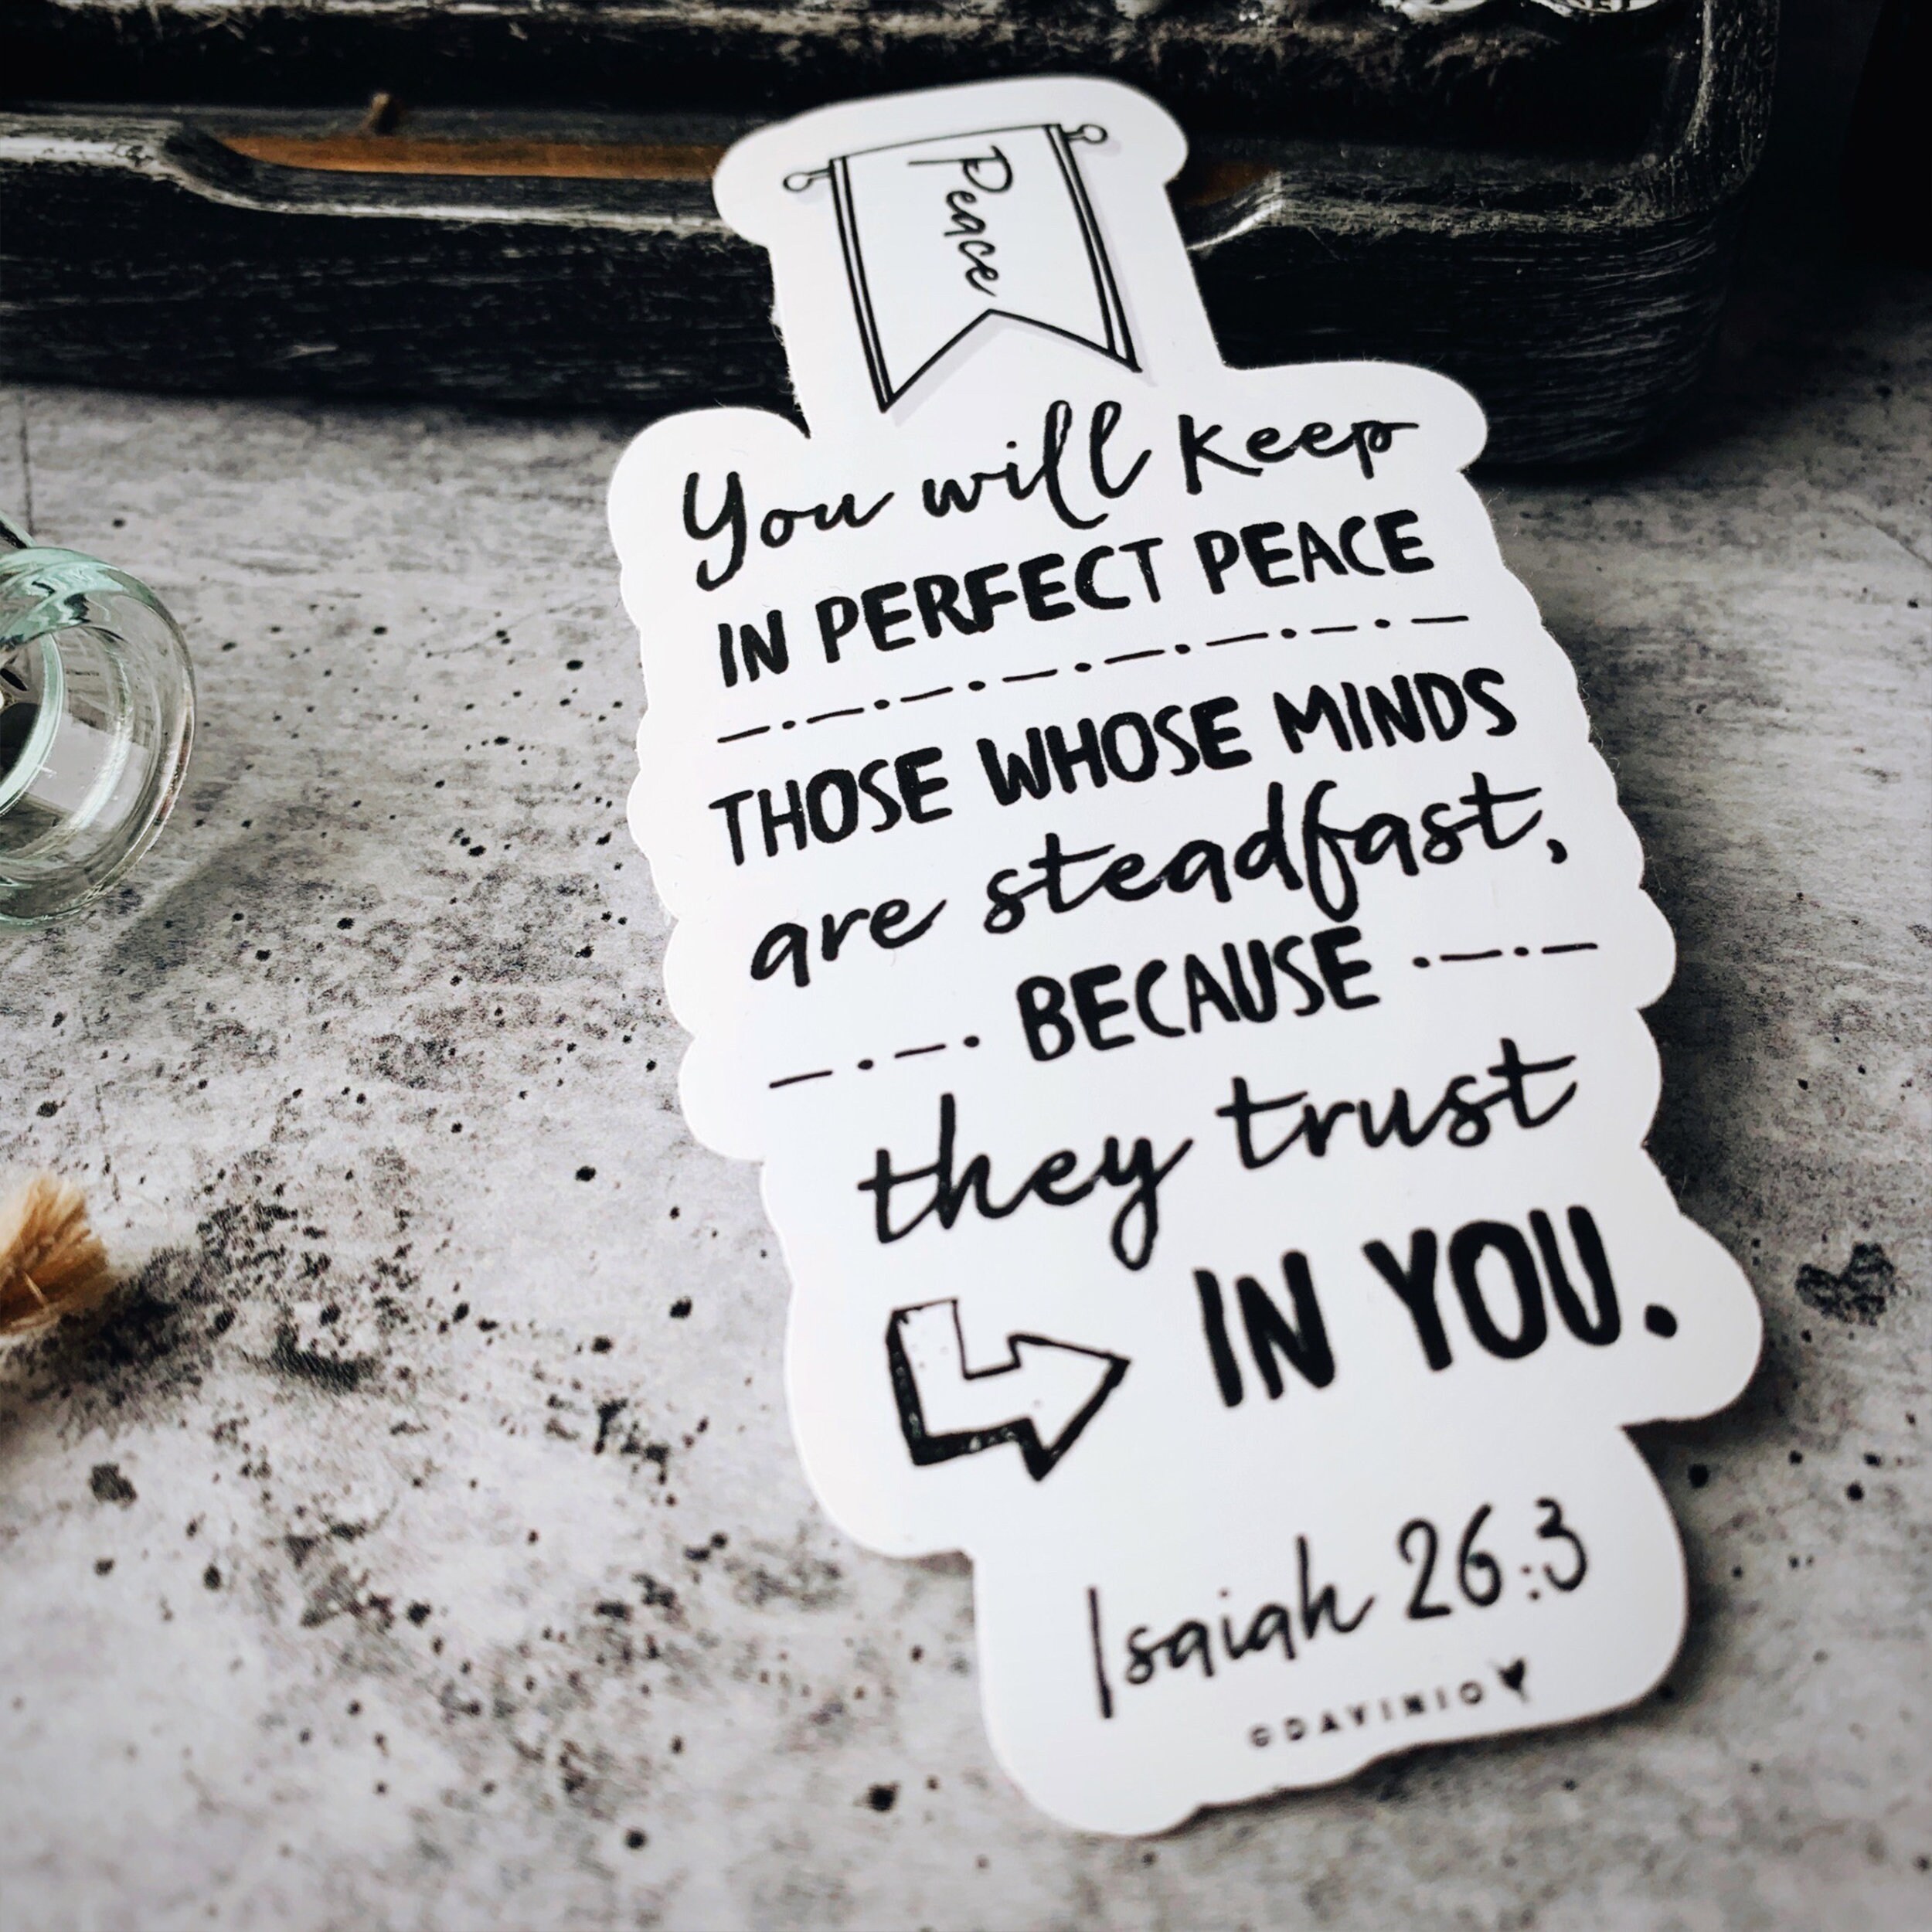 Peace
You will keep
IN PERFECT PEACE
THOSE WHOSE MINDS
are steadfast,
BECAUSE
they trust
IN YOU.
Isaiah 26:3
©DAVINIO